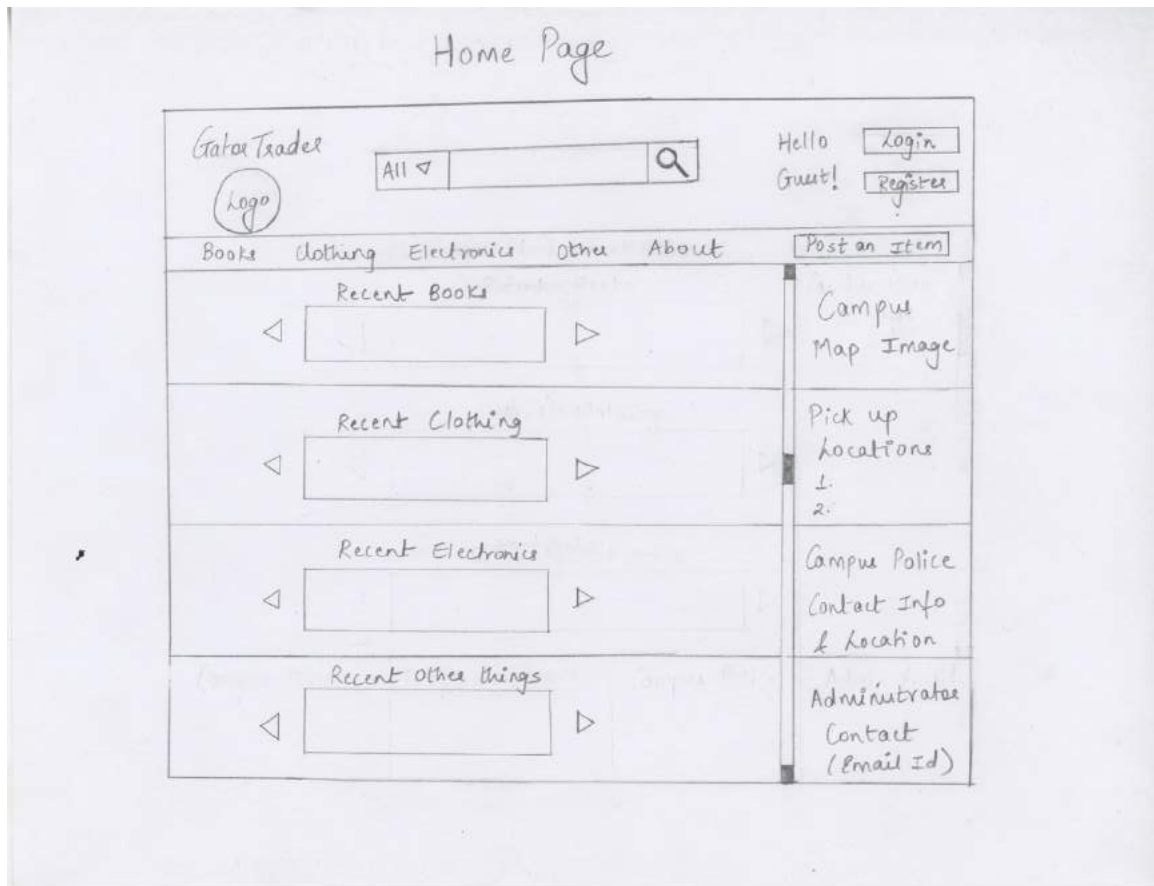 Home Page
Gator Trader
Logo
All
Hello
Guest!
Login
Register
Books Clothing Electronics Other About
Post an Item
Recent Books
Recent Clothing
Recent Electronics
Recent Other things
Campus
Map Image
Pick up
Locations
1.
2.
Campus Police
Contact Info
& Location
Administrator
Contact
(Email Id)